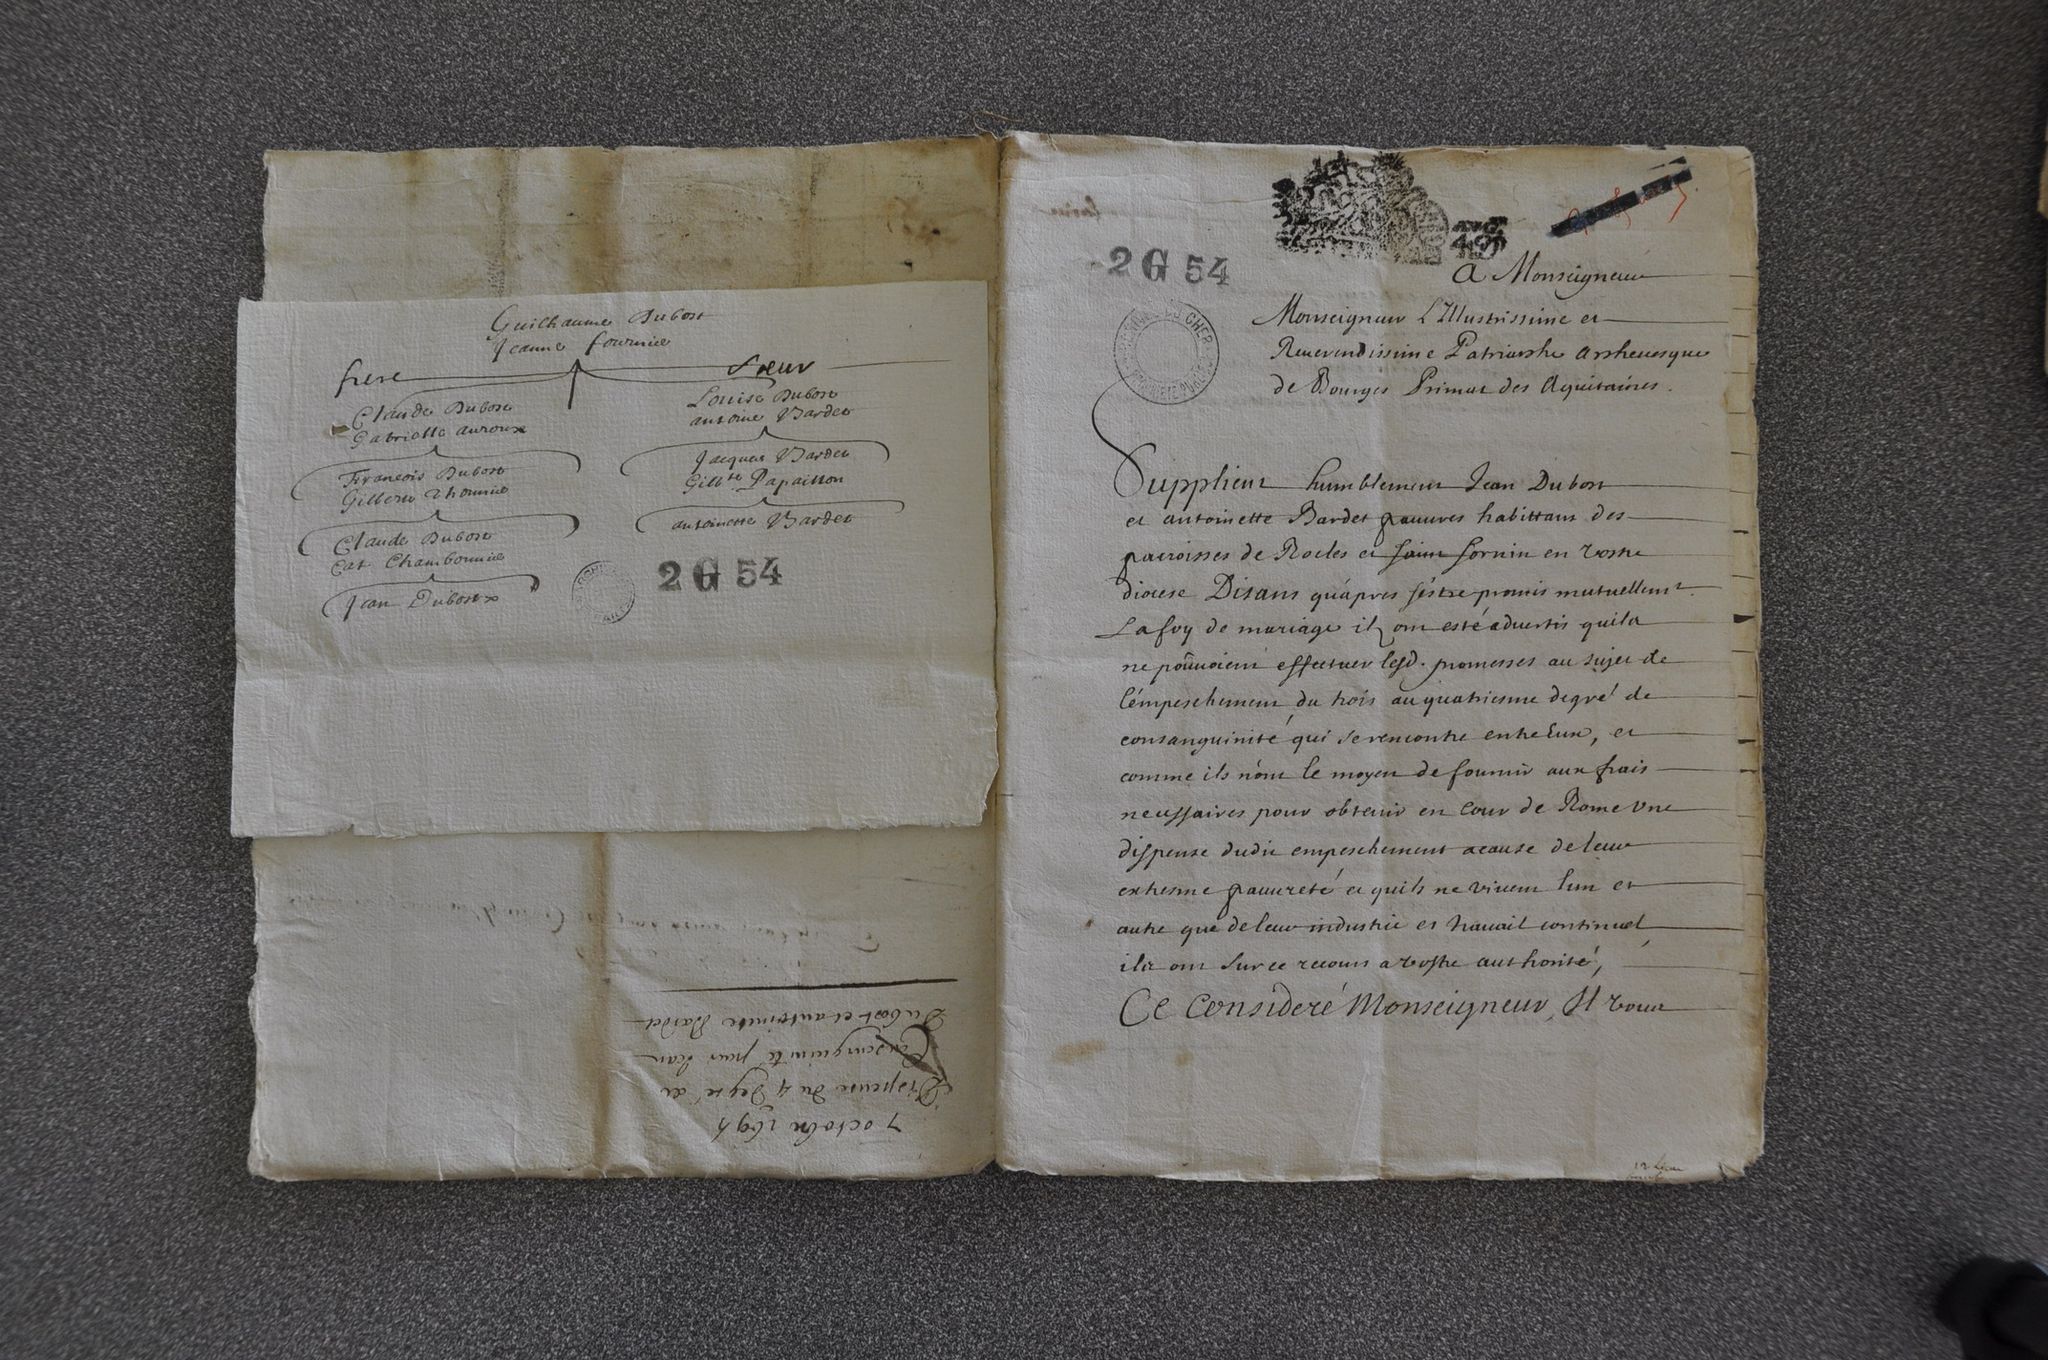 Guilhaume Dubost
Jeanne fournier
frere
soeur
Claude Dubost
Gabrielle auroux
François Dubost
Gilberte Thonnié
Claude Dubost
Cat Chambonnié
Jean Dubost
Louise Dubost
antoine Bardet
Jacques Bardet
Gilb.te Papaillon
antoinette Bardet
2 G 54
7 octobre
Dispense du 4 degré de
Consenguinité pour Jean
Dubost et antoinette Bardet
2 G 54
A Monseigneur
Monseigneur L'Illustrissime et
Reuerendissime Patriarche Archeuesque
de Bourges Primat des Aquitaines.
Supplient humblement Jean Dubost
et antoinette Bardet pauures habittans des
parroisses de Rocles et saint sornin en vostre
diocese Disans qu'apres s'éstre promis mutuellemt.
La foy de mariage ilz ont esté aduertis quils
ne pouuoient effectuer lesd. promesses au sujet de
l'émpeschement du trois au quatriesme degré de
consanguinité qui se rencontre entre Eux, et
comme ils n'ont le moyen de fournir aux frais
necessaires pour obtenir en Cour de Rome vne
dispense dudit empeschement acause de leur
extresme pauureté et quils ne viuent lun et
autre que de leur industrie et trauail continuel
ils ont sur ce recours a vostre authorité,
Ce Consideré Monseigneur, Il vous